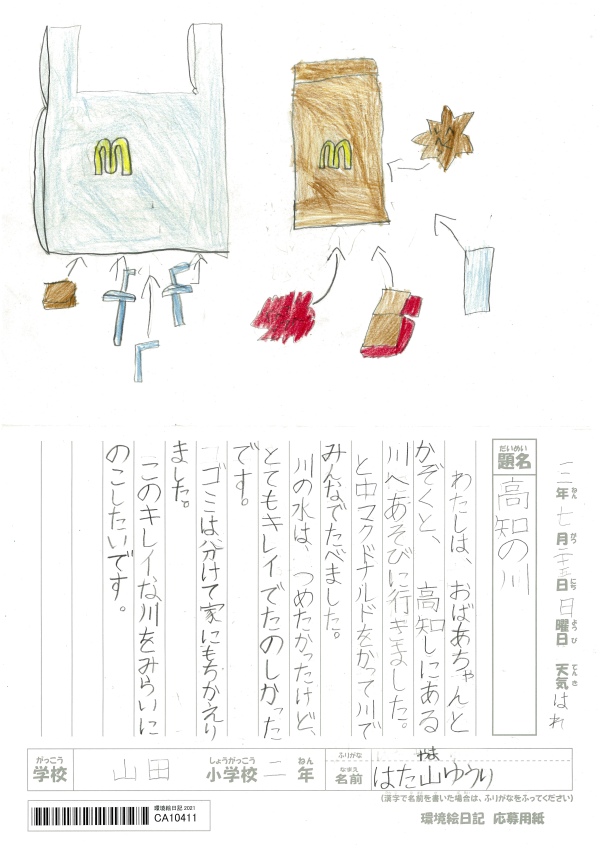 M
M
三年七月二十五日日曜日 天気はれ
ねん がつ にち ようび てんき
だいめい
題名
高知の川
わたしは、おばあちゃんと
かぞくと、高知しにある
川へあそびに行きました。
と中マクドナルドをかって川で
みんなでたべました。
川の水は、つめたかったけど、
とてもキレイでたのしかった
です。
ゴミは分けて家にもちかえり
ました。
このキレイな川をみらいに
のこしたいです。
がっこう しょうがっこう ねん ふりがな やま
学校 山田 小学校 二年 なまえ 名前 はた山ゆうり
(漢字で名前を書いた場合は、ふりがなをふってください)
環境絵日記 2021
CA10411
環境絵日記 応募用紙